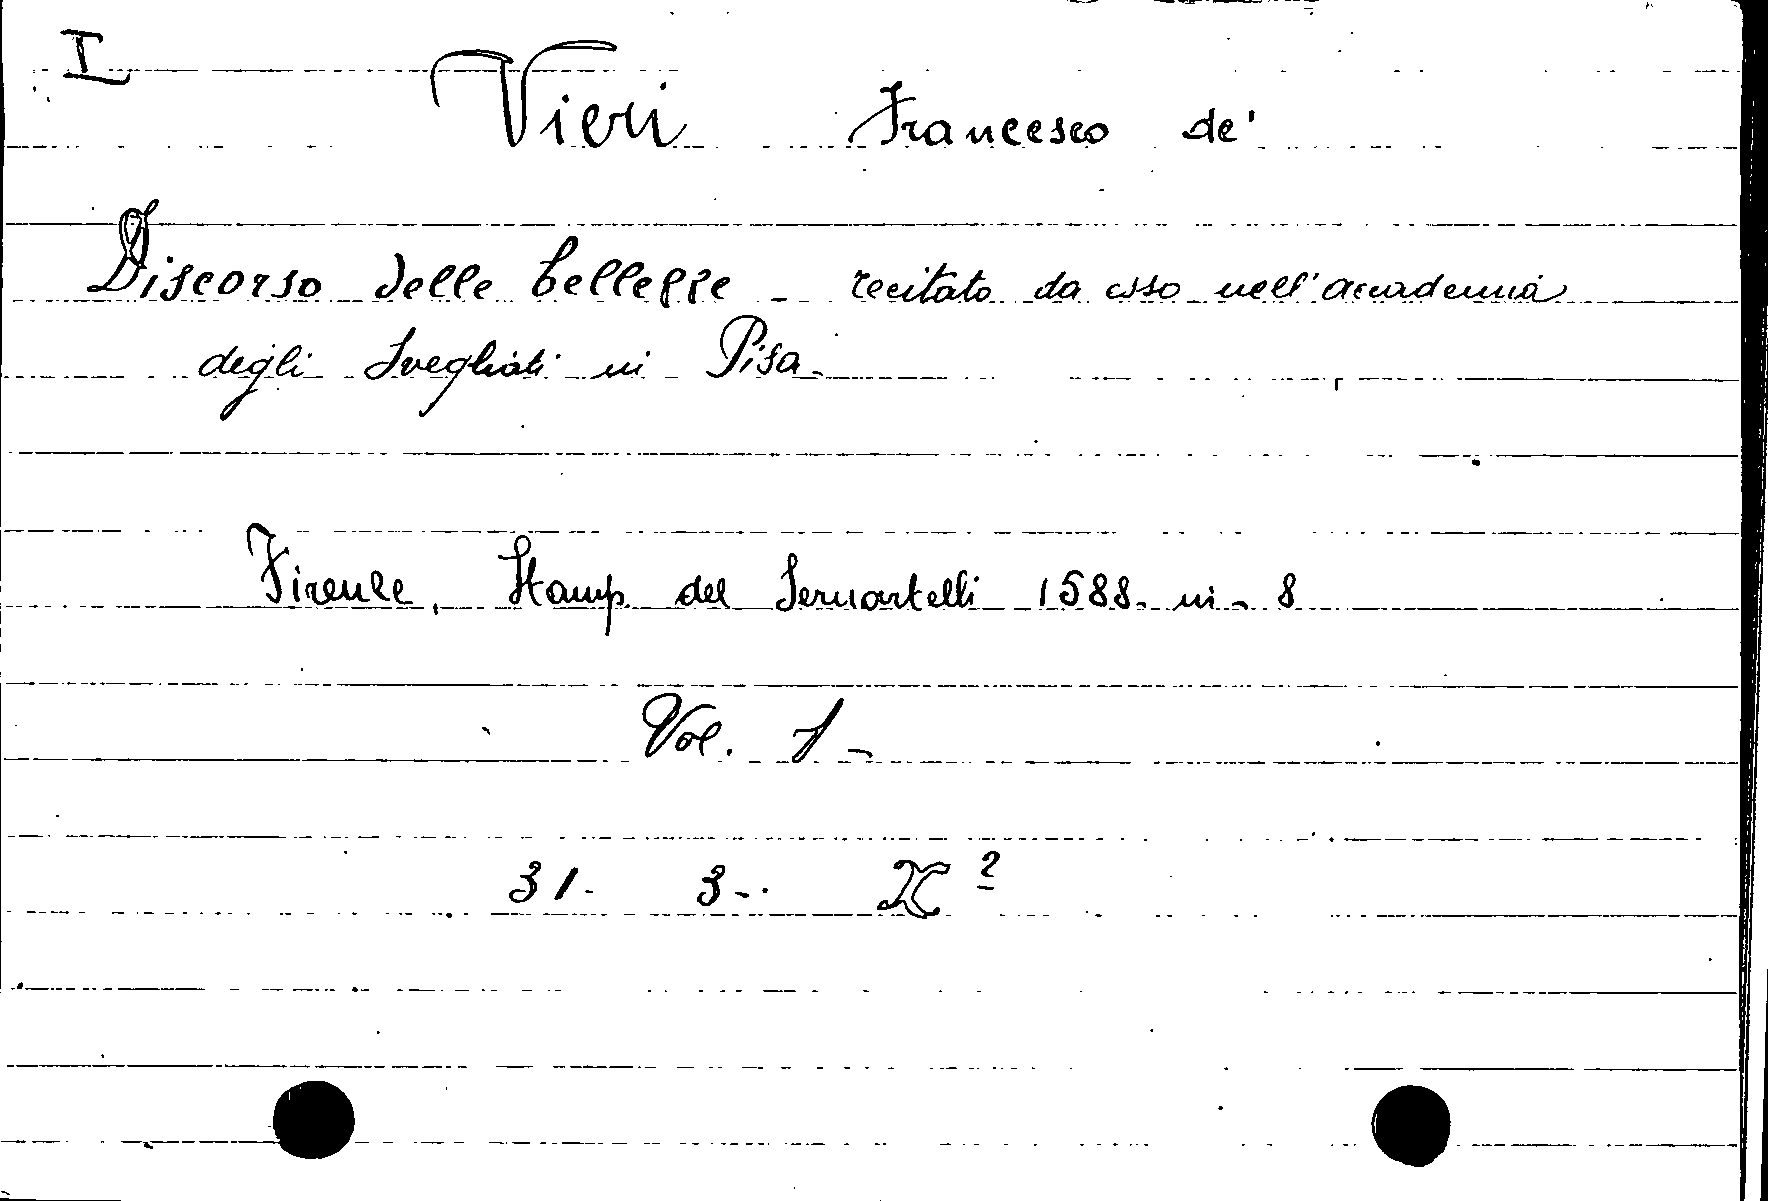 I
Vieri Francesco de'
Discorso delle bellezze - recitato da esso nell'accademia
degli Svegliati in Pisa.
Firenze, Stamp. del Sermartelli 1588. in - 8
Vol. 1 -
31. 3.. X 2